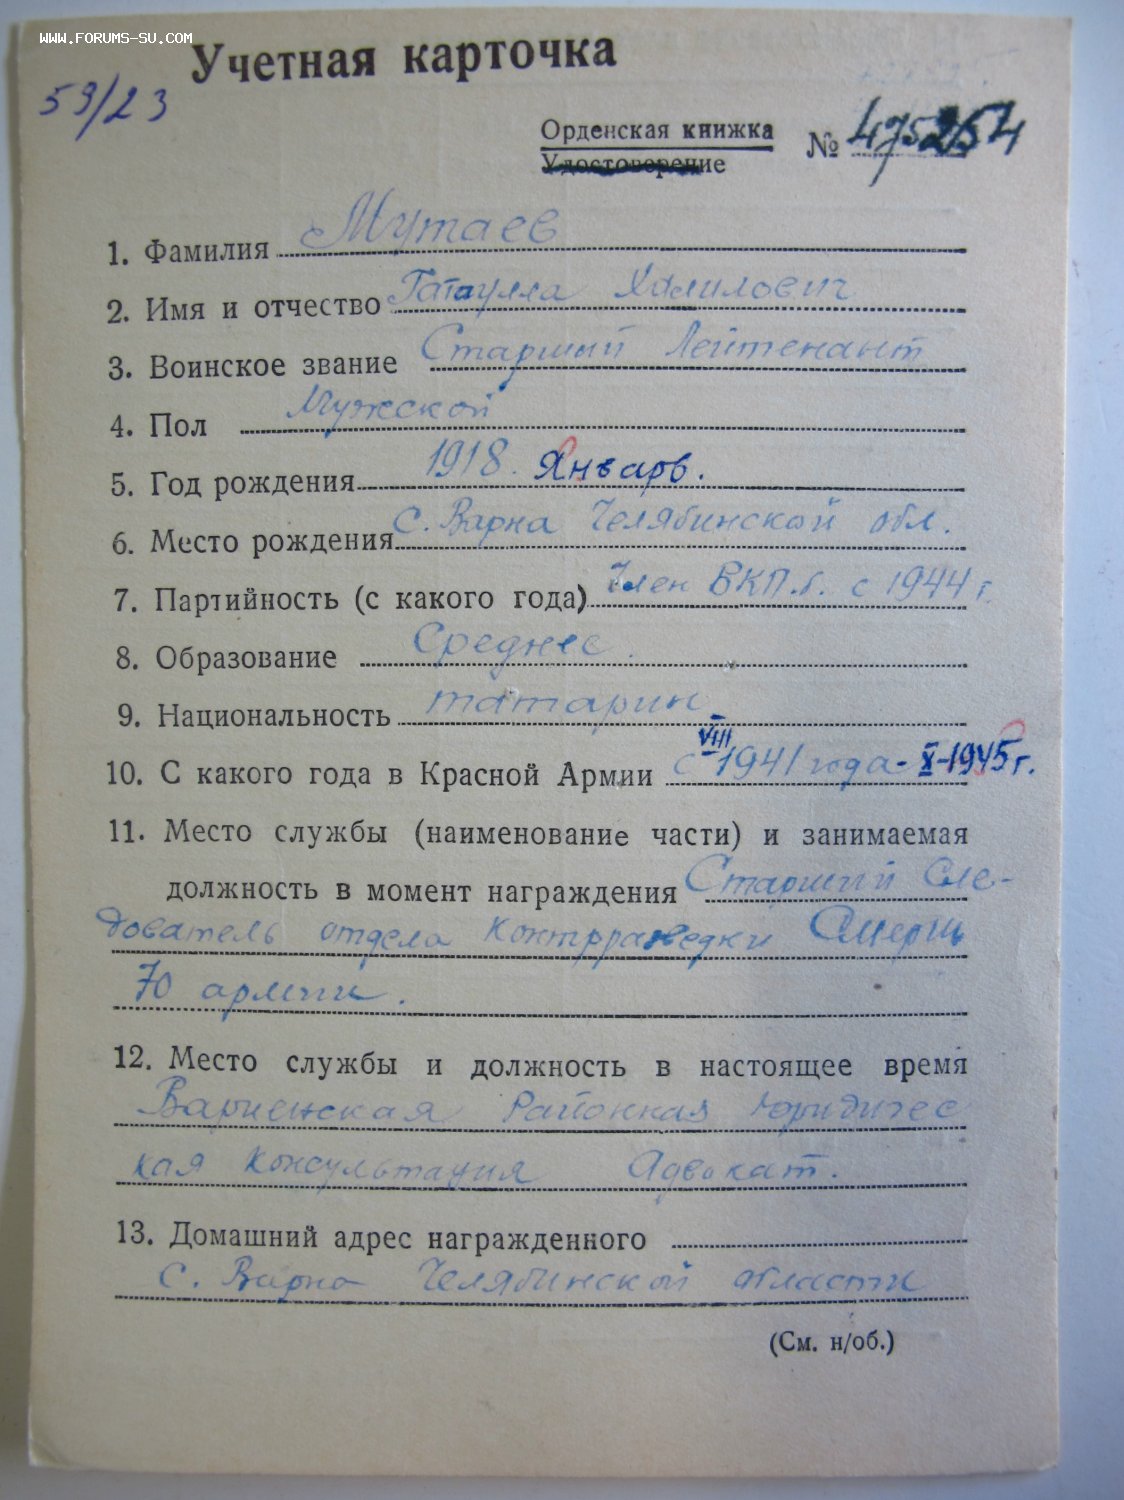 WWW.FORUMS-SU.COM
Учетная карточка
59/23
Орденская книжка № 475254
Удостоверение
1. Фамилия Мутаев
2. Имя и отчество Гатаулла Халилович
3. Воинское звание Старший Лейтенант
4. Пол Мужской
5. Год рождения 1918. Январь.
6. Место рождения с. Варна Челябинской обл.
7. Партийность (с какого года) Член ВКП.б. с 1944 г.
8. Образование Среднее.
9. Национальность татарин
10. С какого года в Красной Армии с VIII 1941 года - X-1945 г.
11. Место службы (наименование части) и занимаемая
должность в момент награждения Старший Сле-
дователь отдела контрразведки Смерш
70 армии.
12. Место службы и должность в настоящее время
Варненская Районная Юридичес
кая консультация Адвокат.
13. Домашний адрес награжденного
с. Варна Челябинской области
(См. н/об.)